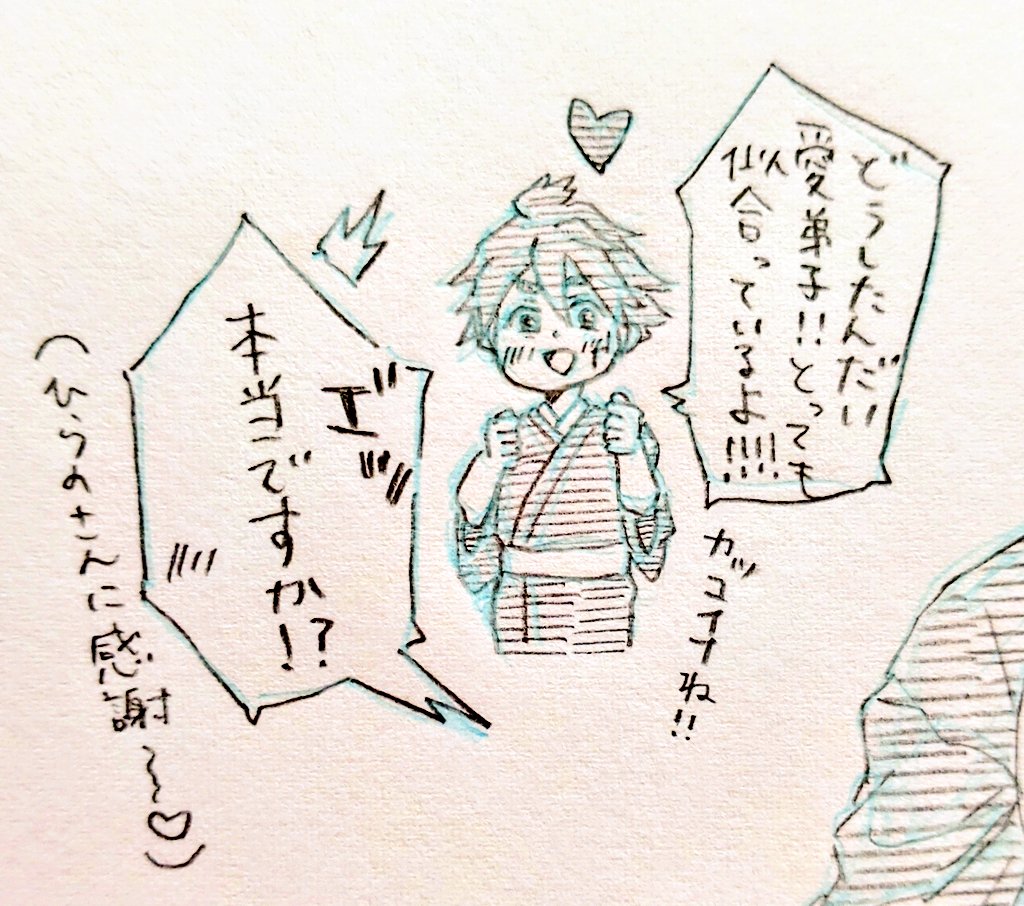 どうしたんだい
愛弟子!!とっても
似合っているよ!!!!
カッコイイね!!
エ゛ッ
本当ですか!?
(ひらのさんに感謝～♡)